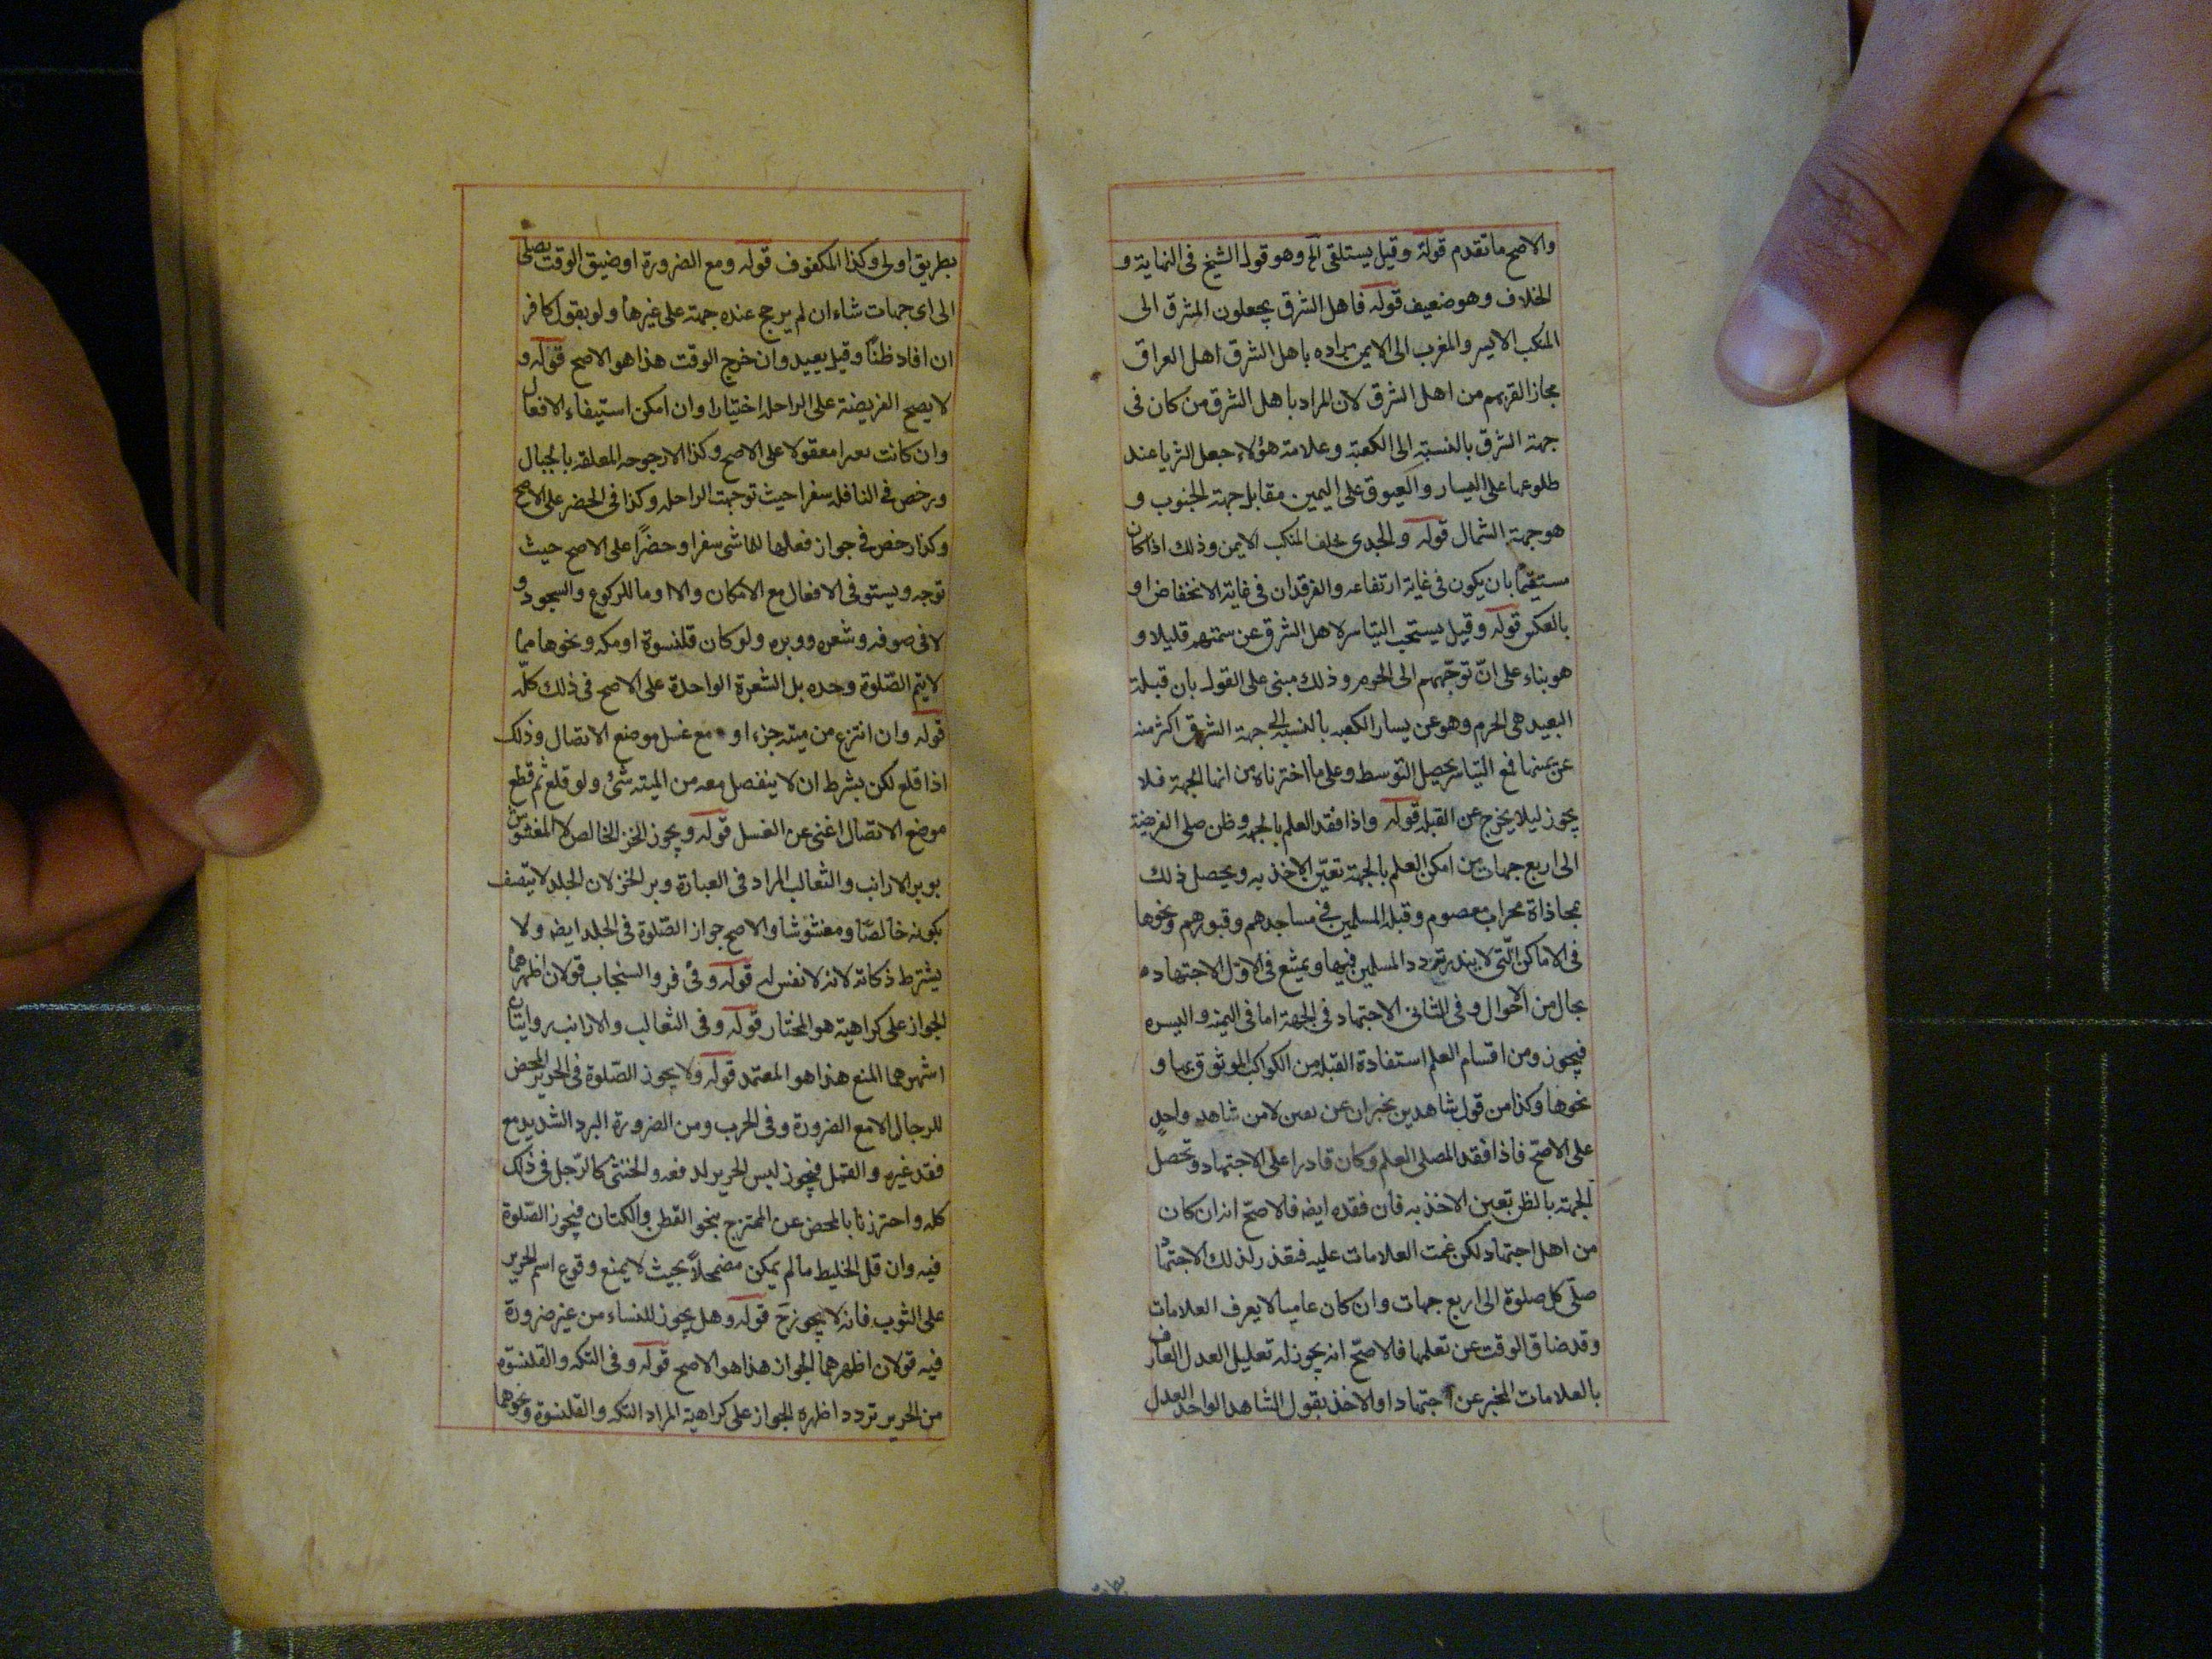 والاصح ما تقدم قوله وقيل يستلقى الخ وهو قول الشيخ فى النهاية و
الخلاف وهو ضعيف قوله فاهل الشرق يجعلون المشرق الى
المنكب الايسر والمغرب الى الايمن مراده باهل الشرق اهل العراق
مجازا لقربهم من اهل الشرق لان المراد باهل الشرق من كان فى
جهة الشرق بالنسبة الى الكعبة وعلامة هؤلاء جعل الثريا عند
طلوعها على اليسار والعيوق على اليمين مقابل جهة الجنوب و
هو جهة الشمال قوله والجدى خلف المنكب الايمن وذلك اذا كان
مستقيمًا بان يكون فى غاية ارتفاعه والفرقدان فى غاية الانخفاض او
بالعكس قوله وقيل يستحب التياسر لاهل الشرق عن سمتهم قليلا و
هو بناء على انّ توجّههم الى الحرم وذلك مبنى على القول بان قبلة
البعيد هى الحرم وهو عن يسار الكعبه بالنسبة الى جهة الشرق اكثر منه
عن يمينها فمع التياسر يحصل التوسط وعلى ما اخترناه من انها الجهة فلا
يجوز ليلا يخرج عن القبله قوله واذا فقد العلم بالجهه وظن صلى الفريضة
الى اربع جهات من امكن العلم بالجهة تعيّن الاخذ به ويحصل ذلك
بمحاذاة محراب معصوم وقبلة المسلمين فى مساجدهم وقبورهم ونحوها
فى الاماكن الّتى لا يندر تردد المسلمين فيها ويمتنع فى الاوّل الاجتهاد
بحال من الاحوال وفى الثانى الاجتهاد فى الجهة اما فى اليمنه واليسره
فيجوز ومن اقسام العلم استفادة القبله من الكواكب الموثوق بها و
نحوها وكذا من قول شاهدين يخبران عن يقين لا من شاهد واحدٍ
على الاصحّ فاذا فقد المصلى العلم وكان قادرا على الاجتهاد وتحصل
الجهة بالظن تعين الاخذ به فان فقده ايضه فالاصحّ انه ان كان
من اهل اجتهاد لكن غمت العلامات عليه فتعذر لذلك الاجتهاد
صلّى كل صلوة الى اربع جهات وان كان عاميا لا يعرف العلامات
وقد ضاق الوقت عن تعلمها فالاصحّ انه يجوز له تعليل العدل العارف
بالعلامات المخبر عن اجتهاد او الاخذ بقول الشاهد الواحد العدل
بطريق اولى وكذا المكفوف قوله ومع الضرورة او ضيق الوقت يصلى
الى اى جهات شاء ان لم يرجح عنده جهة على غيرها ولو بقول كافر
ان افاد ظنًا وقيل يعيد وان خرج الوقت هذا هو الاصح قوله و
لا يصح الفريضة على الراحله اختيارا وان امكن استيفاء الافعال
وان كانت بعيرا معقولا على الاصح وكذا الارجوحه المعلقه بالجبال
ورخص فى النافله سفرا حيث توجهت الراحله وكذا فى الحضر على الاصح
وكذا رخص فى جواز فعلها للماشى سفرا وحضرًا على الاصح حيث
توجه ويستوفى الافعال مع الامكان والا اومأ للركوع والسجود و
لا فى صوفه وشعره ووبره ولو كان قلنسوة او تكه ونحوها مما
لا يتم الصّلوة وحده بل الشعرة الواحدة على الاصح فى ذلك كلّه
قوله وان انتزع من ميته جزء او مع غسل موضع الاتصال وذلك
اذا قلع لكن بشرط ان لا ينفصل معه من الميته شئ ولو قلع ثم قطع
موضع الاتصال اغنى عن الغسل قوله ويجوز الخز الخالص لا المغشوش
بوبر الارانب والثعالب المراد فى العبارة وبر الخز لان الجلد لا يتصف
بكونه خالصًا ومغشوشا والاصح جواز الصّلوة فى الجلد ايضه ولا
يشترط ذكاته لانه لا نفس له قوله وفى فرو السنجاب قولان اظهرهما
الجواز على كراهية هو المختار قوله وفى الثعالب والارانب روايتان
اشهرهما المنع هذا هو المعتمد قوله ولا يجوز الصّلوة فى الحرير المحض
للرجال الا مع الضرورة وفى الحرب ومن الضرورة البرد الشديد مع
فقد غيره والقمل فيجوز لبس الحرير لدفعه والخنثى كالرّجل فى ذلك
كله واحترزنا بالمحض عن الممتزج بنحو القطن والكتان فيجوز الصّلوة
فيه وان قل الخليط ما لم يكن مضمحلاً بحيث لا يمنع وقوع اسم الحرير
على الثوب فانه لا يجوز ح قوله وهل يجوز للنساء من غير ضرورة
فيه قولان اظهرهما الجواز هذا هو الاصح قوله وفى التكه والقلنسوه
من الحرير تردد اظهره الجواز على كراهية المراد التكه والقلنسوة ونحوهما